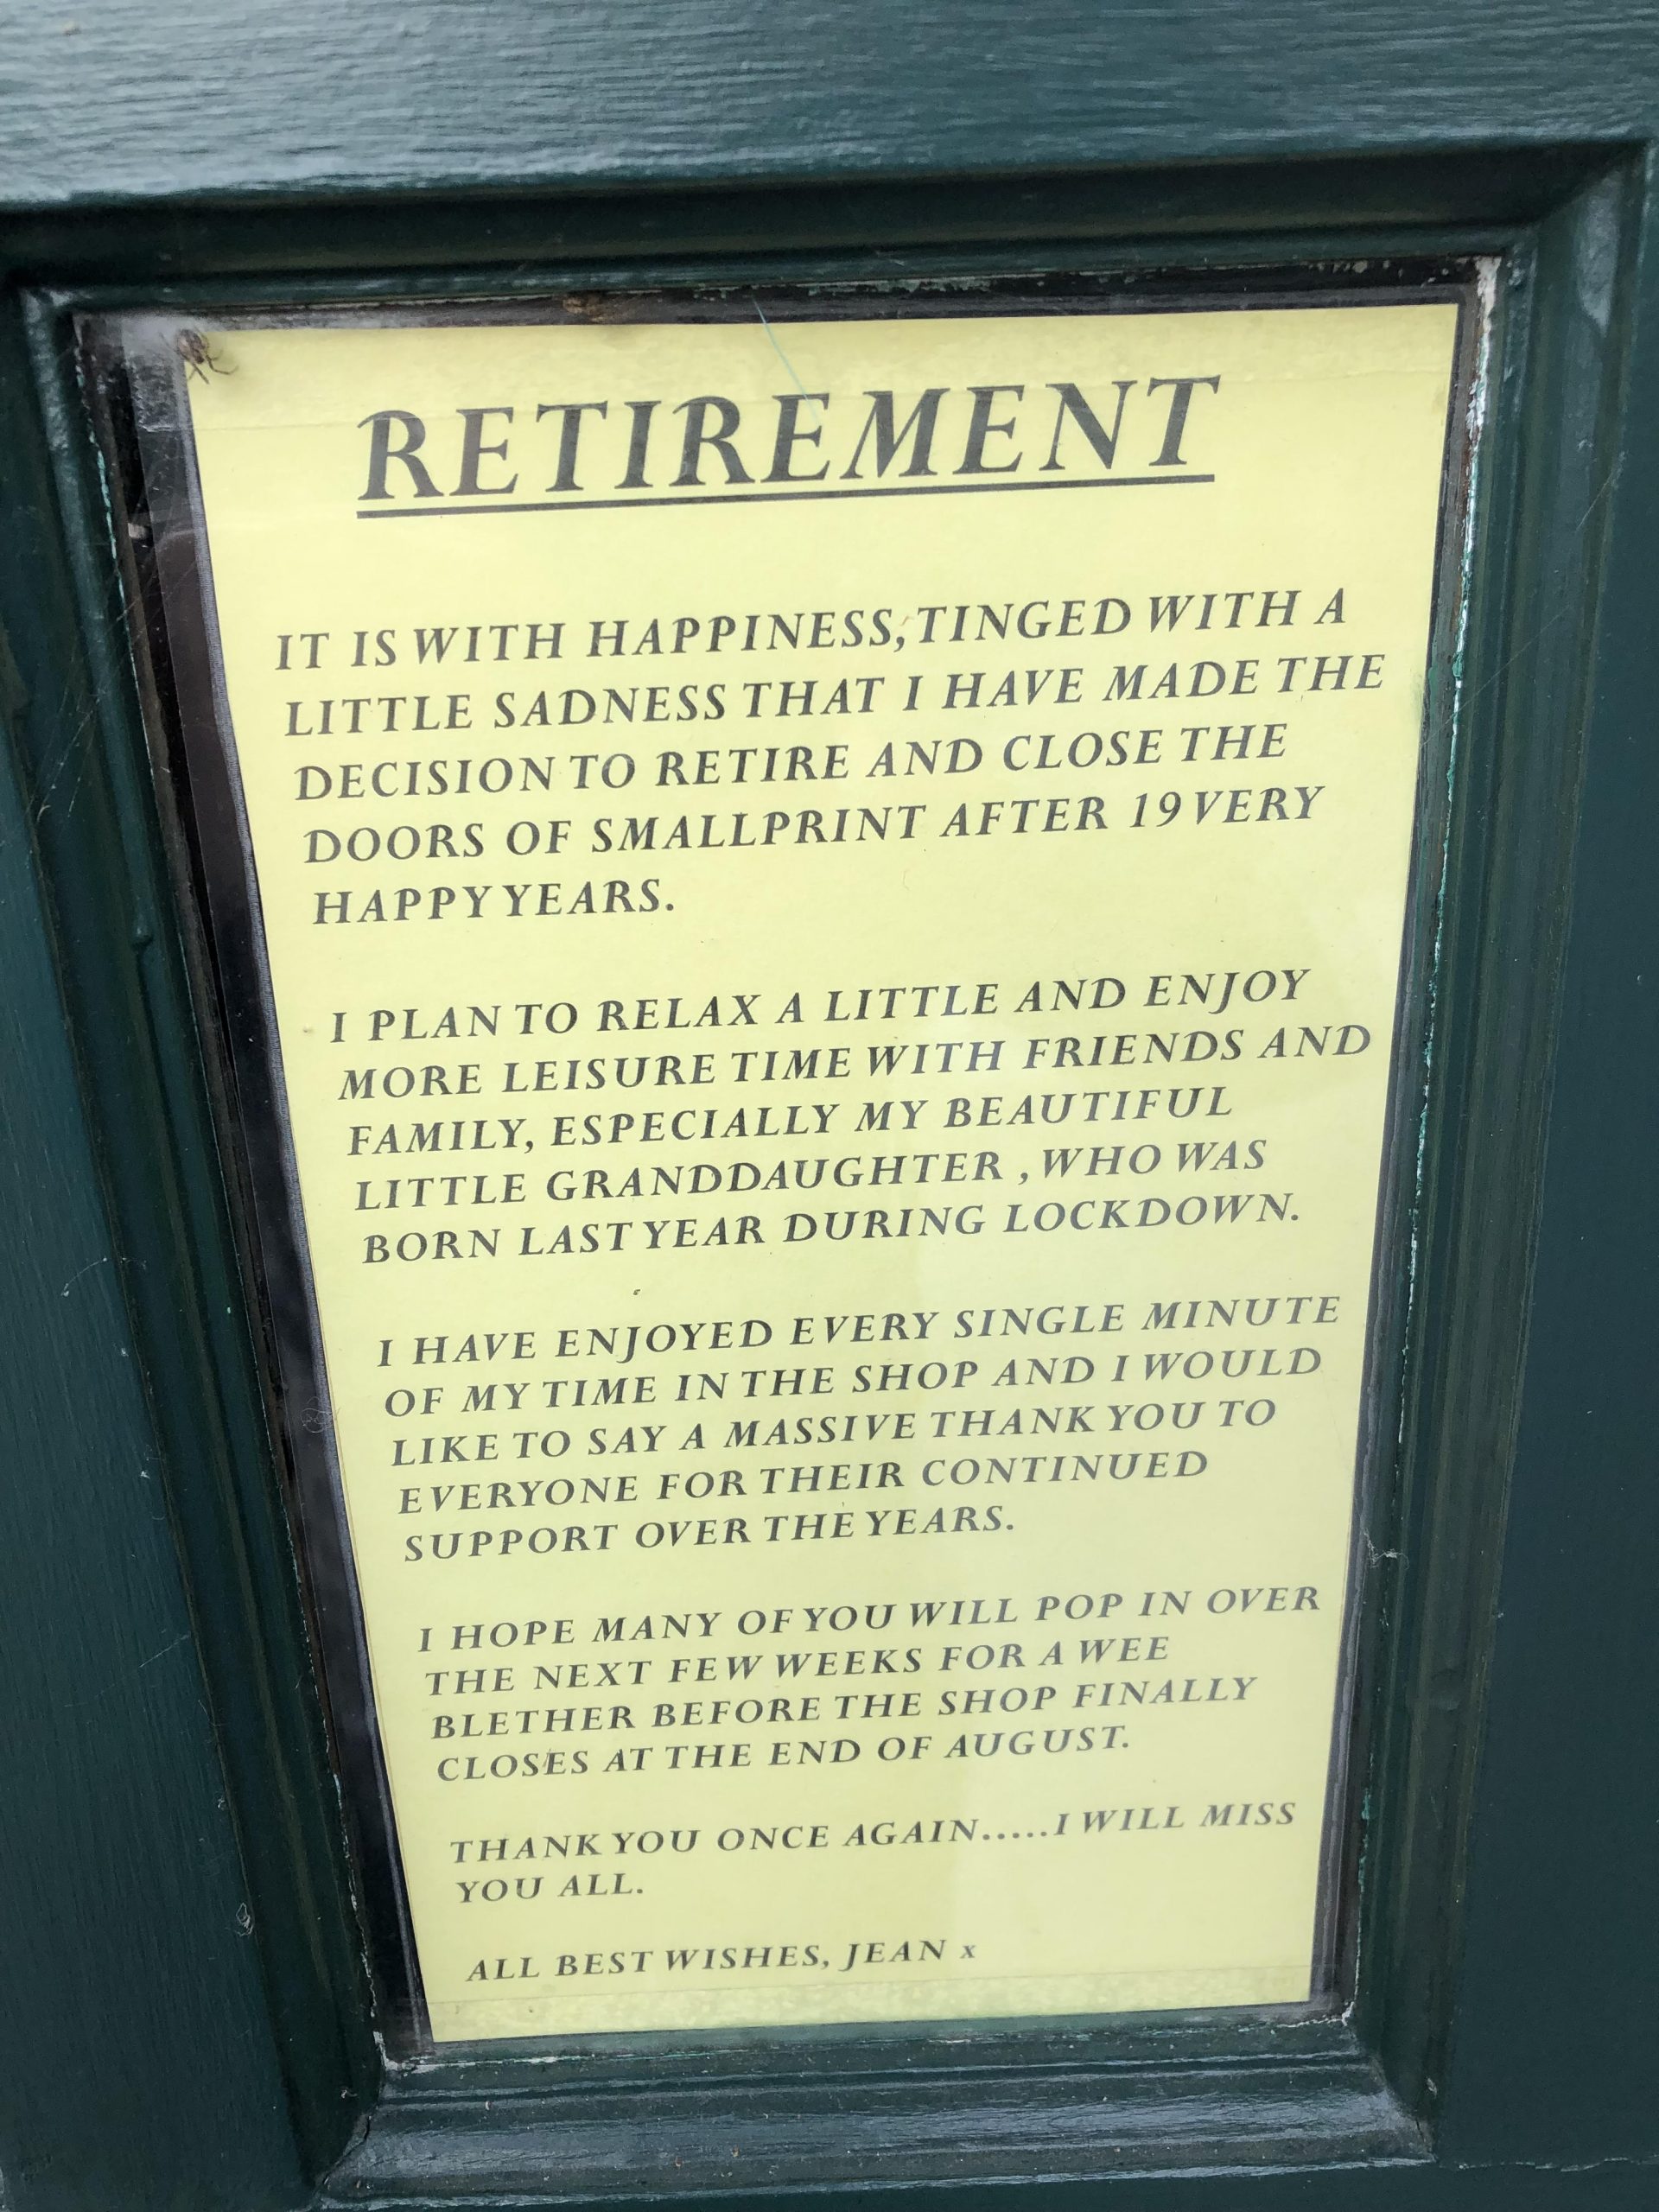 RETIREMENT
IT IS WITH HAPPINESS, TINGED WITH A
LITTLE SADNESS THAT I HAVE MADE THE
DECISION TO RETIRE AND CLOSE THE
DOORS OF SMALLPRINT AFTER 19 VERY
HAPPY YEARS.
I PLAN TO RELAX A LITTLE AND ENJOY
MORE LEISURE TIME WITH FRIENDS AND
FAMILY, ESPECIALLY MY BEAUTIFUL
LITTLE GRANDDAUGHTER , WHO WAS
BORN LAST YEAR DURING LOCKDOWN.
I HAVE ENJOYED EVERY SINGLE MINUTE
OF MY TIME IN THE SHOP AND I WOULD
LIKE TO SAY A MASSIVE THANK YOU TO
EVERYONE FOR THEIR CONTINUED
SUPPORT OVER THE YEARS.
I HOPE MANY OF YOU WILL POP IN OVER
THE NEXT FEW WEEKS FOR A WEE
BLETHER BEFORE THE SHOP FINALLY
CLOSES AT THE END OF AUGUST.
THANK YOU ONCE AGAIN.....I WILL MISS
YOU ALL.
ALL BEST WISHES, JEAN x